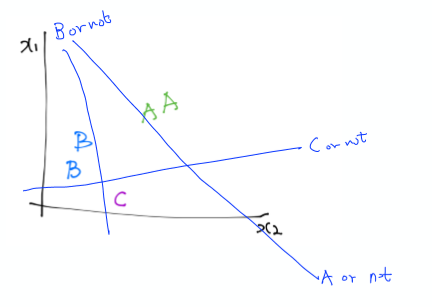 B or not
x1
A A
B
B
C or not
C
x2
A or not